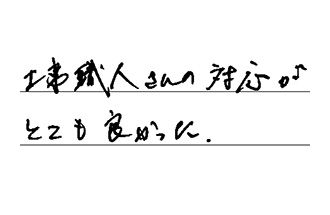 工事職人さんの対応が
とても良かった.